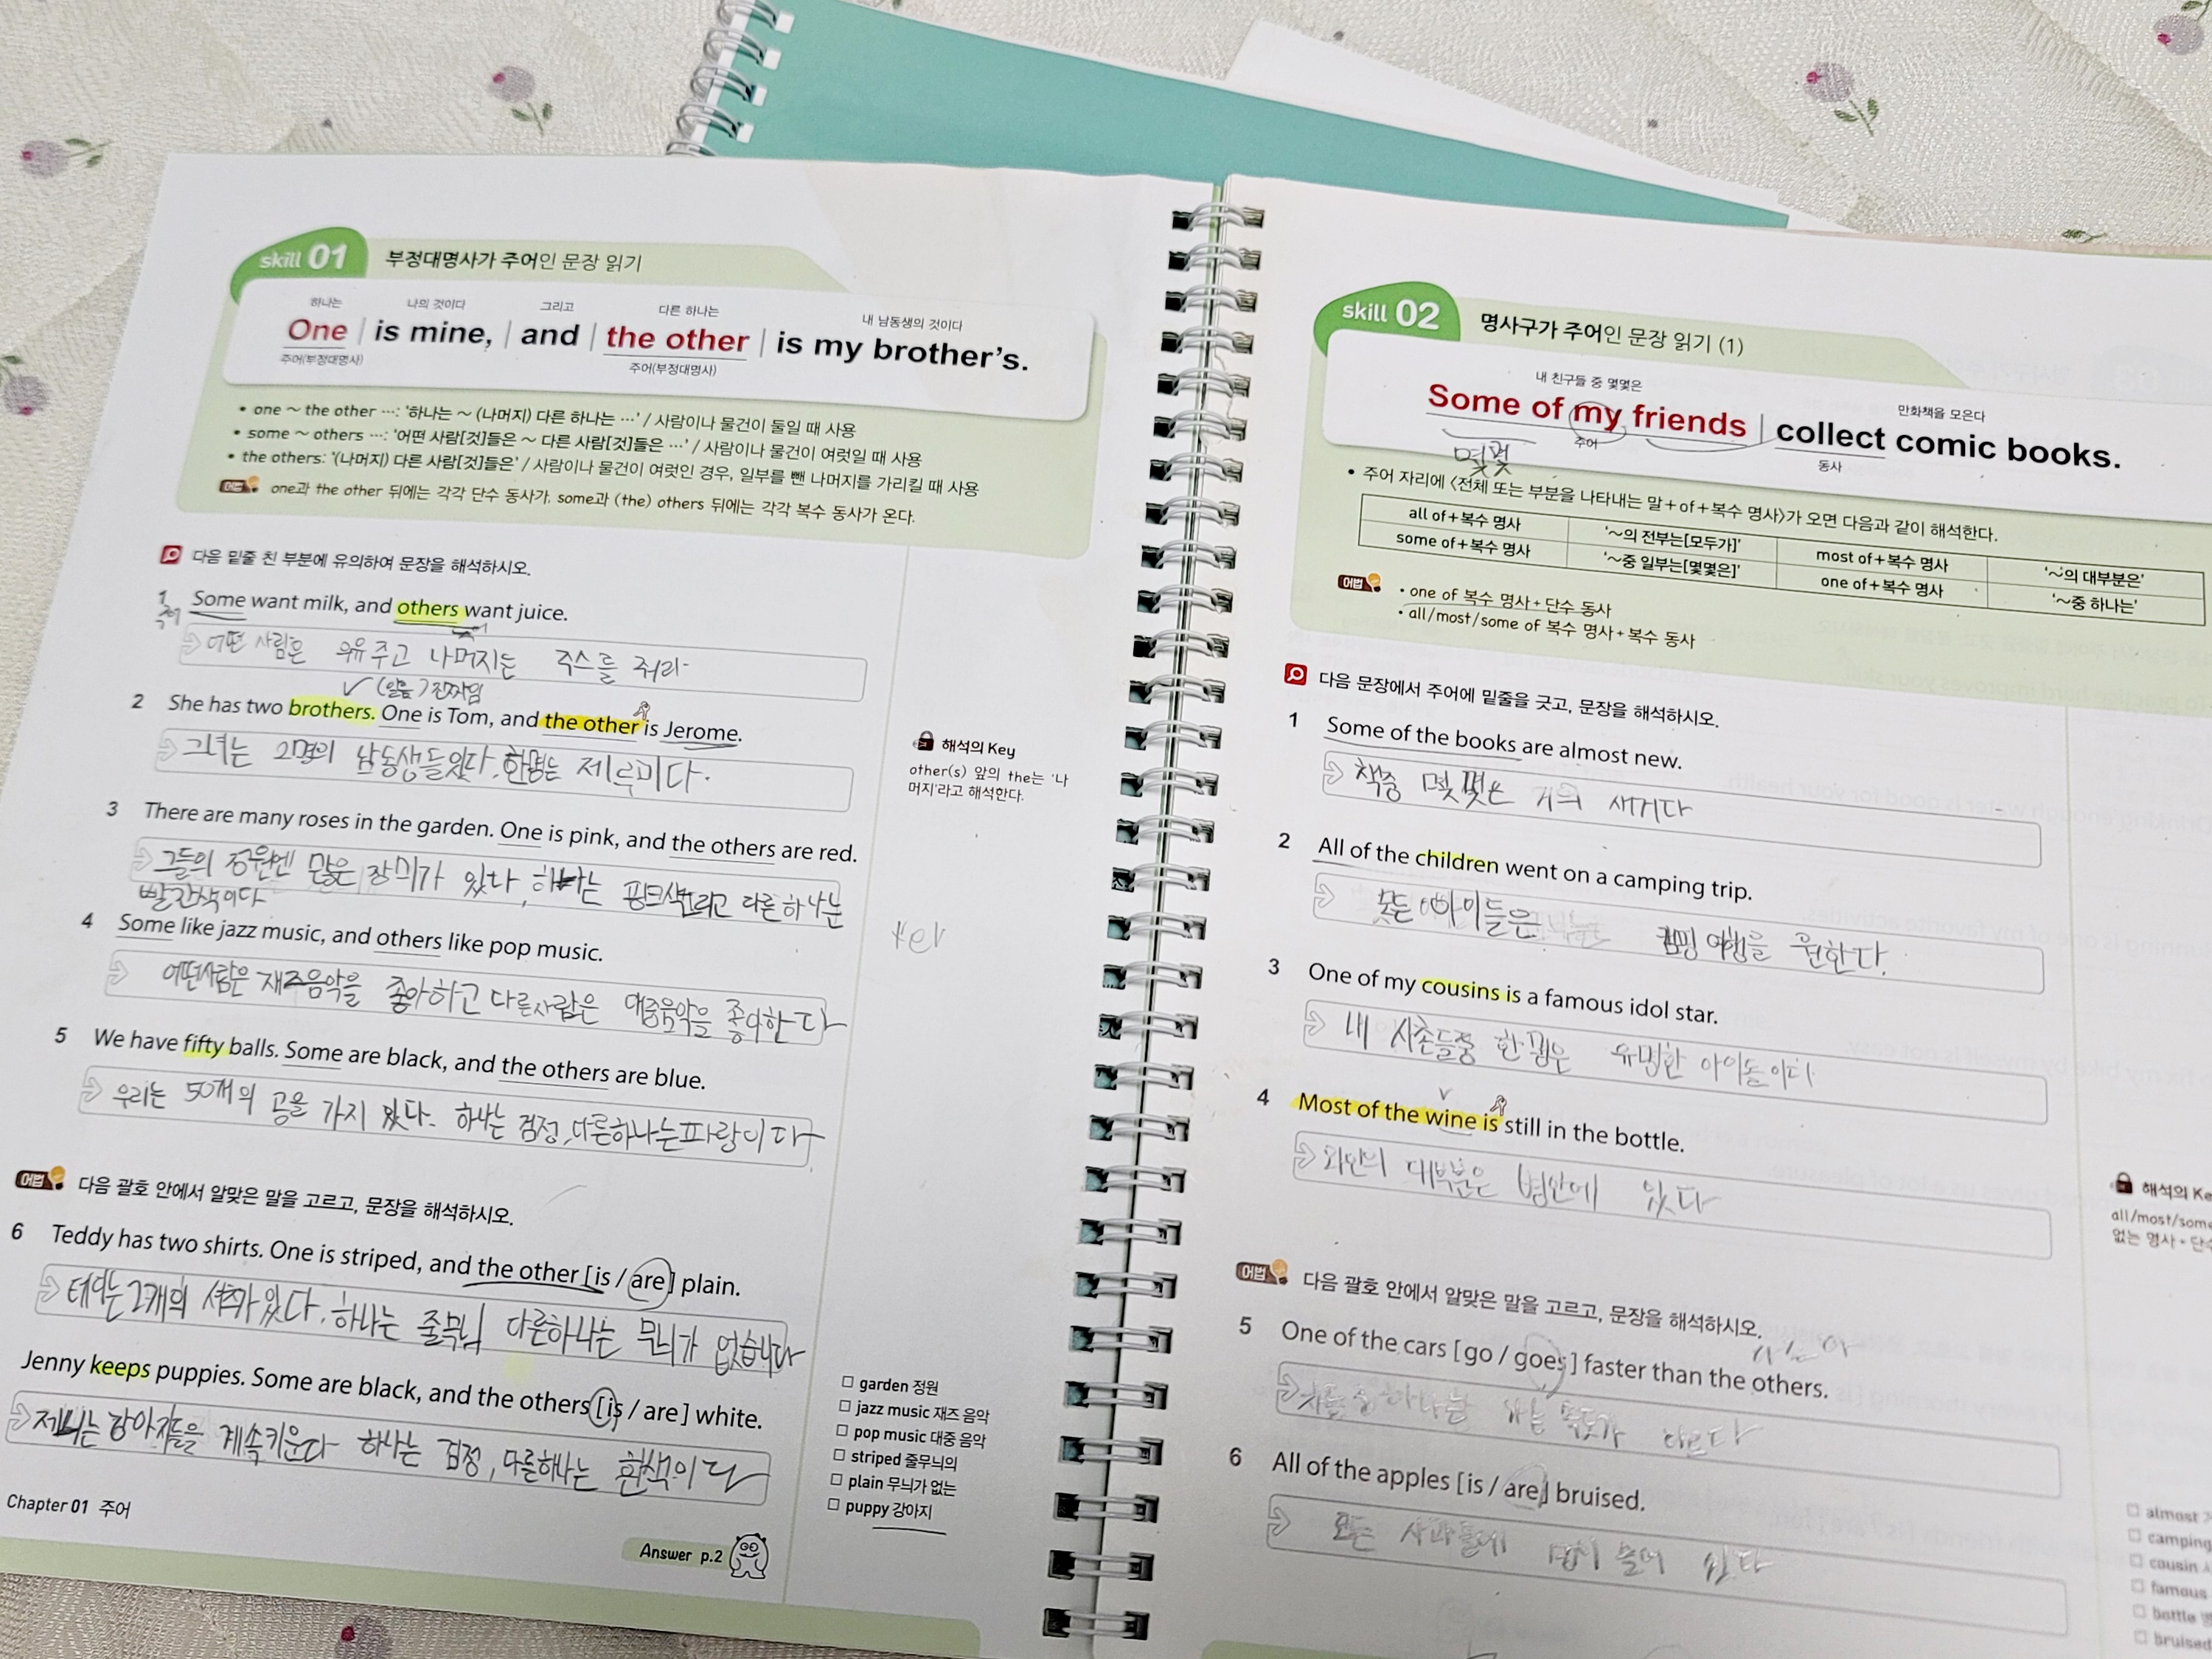 skill 01 부정대명사가 주어인 문장 읽기
하나는 나의 것이다 그리고 다른 하나는 내 남동생의 것이다
One is mine, and the other is my brother's.
주어(부정대명사) 주어(부정대명사)
• one ~ the other …: '하나는 ~ (나머지) 다른 하나는 …' / 사람이나 물건이 둘일 때 사용
• some ~ others …: '어떤 사람[것]들은 ~ 다른 사람[것]들은 …' / 사람이나 물건이 여럿일 때 사용
• the others: '(나머지) 다른 사람[것]들은' / 사람이나 물건이 여럿인 경우, 일부를 뺀 나머지를 가리킬 때 사용
어법 one과 the other 뒤에는 각각 단수 동사가, some과 (the) others 뒤에는 각각 복수 동사가 온다.
다음 밑줄 친 부분에 유의하여 문장을 해석하시오.
1 Some want milk, and others want juice.
주어
어떤 사람은 우유 주고 나머지는 주스를 줘라
2 She has two brothers. One is Tom, and the other is Jerome.
그녀는 2명의 남동생들있다. 한명는 제루미다.
3 There are many roses in the garden. One is pink, and the others are red.
그들의 정원엔 많은 장미가 있다, 하나는 핑크색 다른하나는
빨간색이다
4 Some like jazz music, and others like pop music.
어떤사람은 재즈음악을 좋아하고 다른사람은 대중음악을 좋아한다
5 We have fifty balls. Some are black, and the others are blue.
우리는 50개의 공을 가지 있다. 하나는 검정, 다른하나는파랑이다
어법 다음 괄호 안에서 알맞은 말을 고르고, 문장을 해석하시오.
6 Teddy has two shirts. One is striped, and the other [is / are] plain.
테디는 2개의 셔츠가 있다. 하나는 줄무늬 다른하나는 무늬가 없습니다
Jenny keeps puppies. Some are black, and the others [is / are] white.
제니는 강아지들을 계속키운다 하나는 검정, 다른하나는 흰색이다
해석의 Key
other(s) 앞의 the는 '나
머지'라고 해석한다.
key
□ garden 정원
□ jazz music 재즈 음악
□ pop music 대중 음악
□ striped 줄무늬의
□ plain 무늬가 없는
□ puppy 강아지
Chapter 01 주어
Answer p.2
skill 02 명사구가 주어인 문장 읽기 (1)
내 친구들 중 몇몇은 만화책을 모은다
Some of my friends collect comic books.
몇몇 주어 동사
• 주어 자리에 〈전체 또는 부분을 나타내는 말+of+복수 명사〉가 오면 다음과 같이 해석한다.
all of+복수 명사 '~의 전부는[모두가]' most of+복수 명사 '~의 대부분은'
some of+복수 명사 '~중 일부는[몇몇은]' one of+복수 명사 '~중 하나는'
어법 • one of 복수 명사+단수 동사
• all/most/some of 복수 명사+복수 동사
다음 문장에서 주어에 밑줄을 긋고, 문장을 해석하시오.
1 Some of the books are almost new.
책중 몇몇은 거의 새거다
2 All of the children went on a camping trip.
모든 아이들은 캠핑 여행을 원한다.
3 One of my cousins is a famous idol star.
내 사촌들중 한명은 유명한 아이돌이다
4 Most of the wine is still in the bottle.
와인의 대부분은 병안에 있다
어법 다음 괄호 안에서 알맞은 말을 고르고, 문장을 해석하시오.
5 One of the cars [go / goes] faster than the others.
다르다
6 All of the apples [is / are] bruised.
모든 사과들에 멍이 들어 있다
해석의 Ke
all/most/some
없는 명사+단수
□ almost
□ camping
□ cousin
□ famous
□ bottle
□ bruised